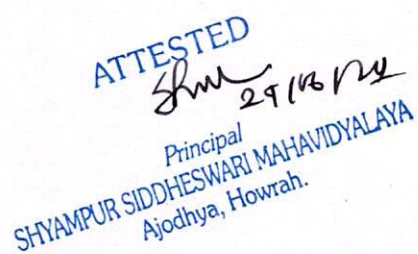 ATTESTED
Principal
SHYAMPUR SIDDHESWARI MAHAVIDYALAYA
Ajodhya, Howrah.